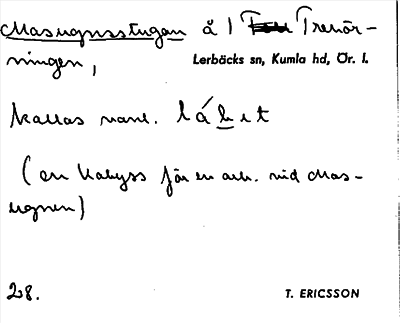 Masugnsstugan å 1 Trenör-
ningen,
Lerbäcks sn, Kumla hd, Ör. l.
kallas vanl. lábet
(en kabyss för en arb. vid Mas-
ugnen)
28.
T. ERICSSON